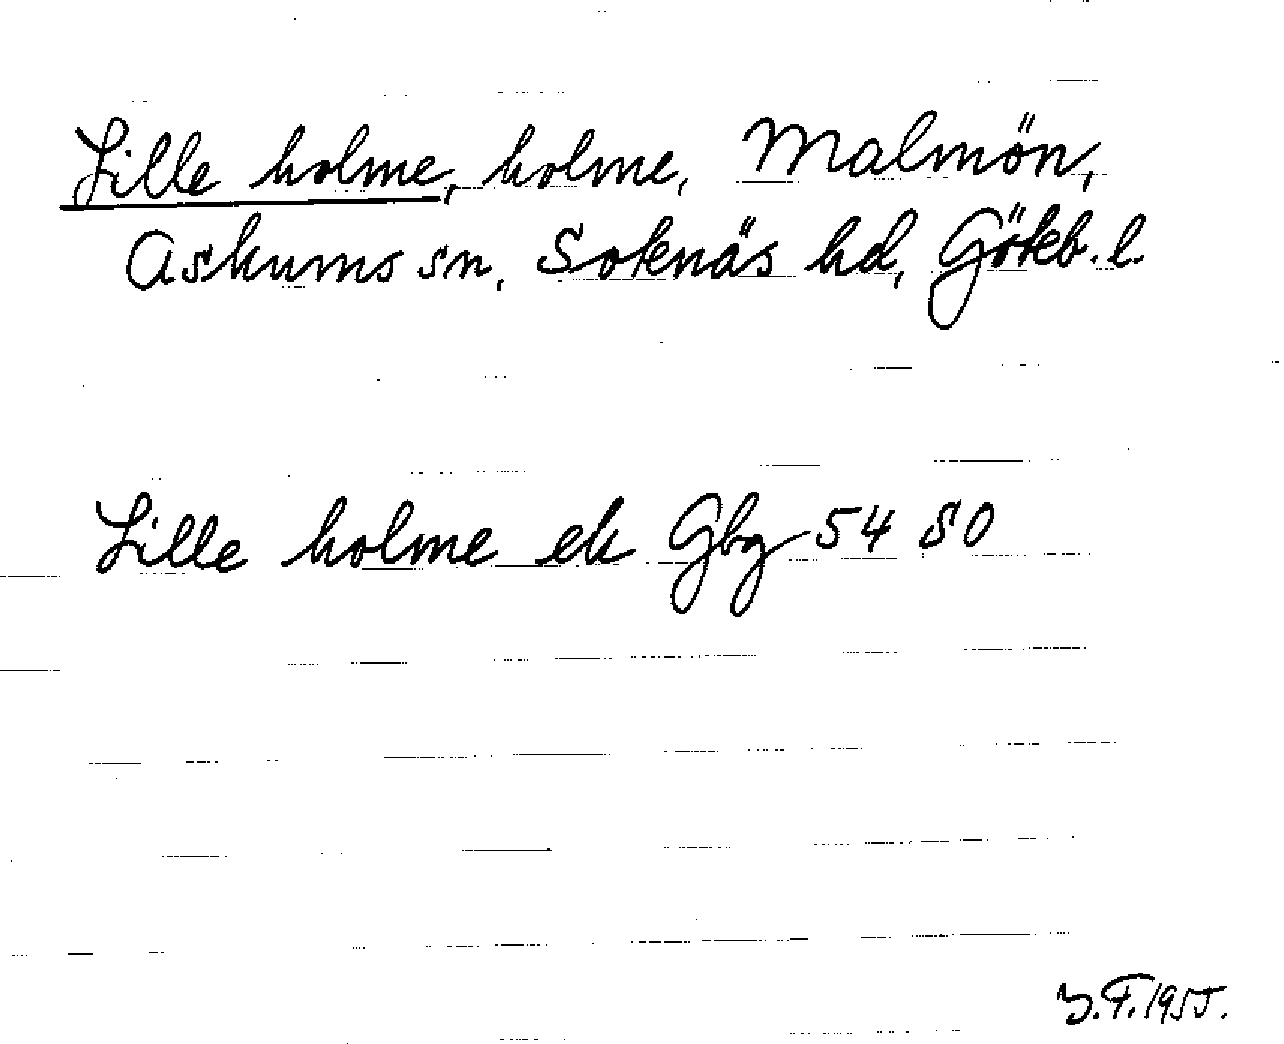 Lille holme, holme, Malmön,
Askums sn, Sotenäs hd, Göteb. l.
Lille holme ek Gbg 54 SO
Y.F. 1955.